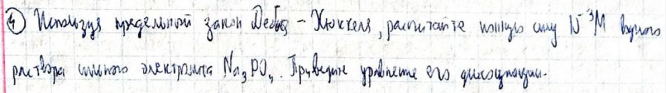 ④ Используя предельный закон Дебая - Хюккеля, рассчитайте ионную силу 10⁻³М водного
раствора сильного электролита Na₃PO₄. Приведите уравнение его диссоциации.